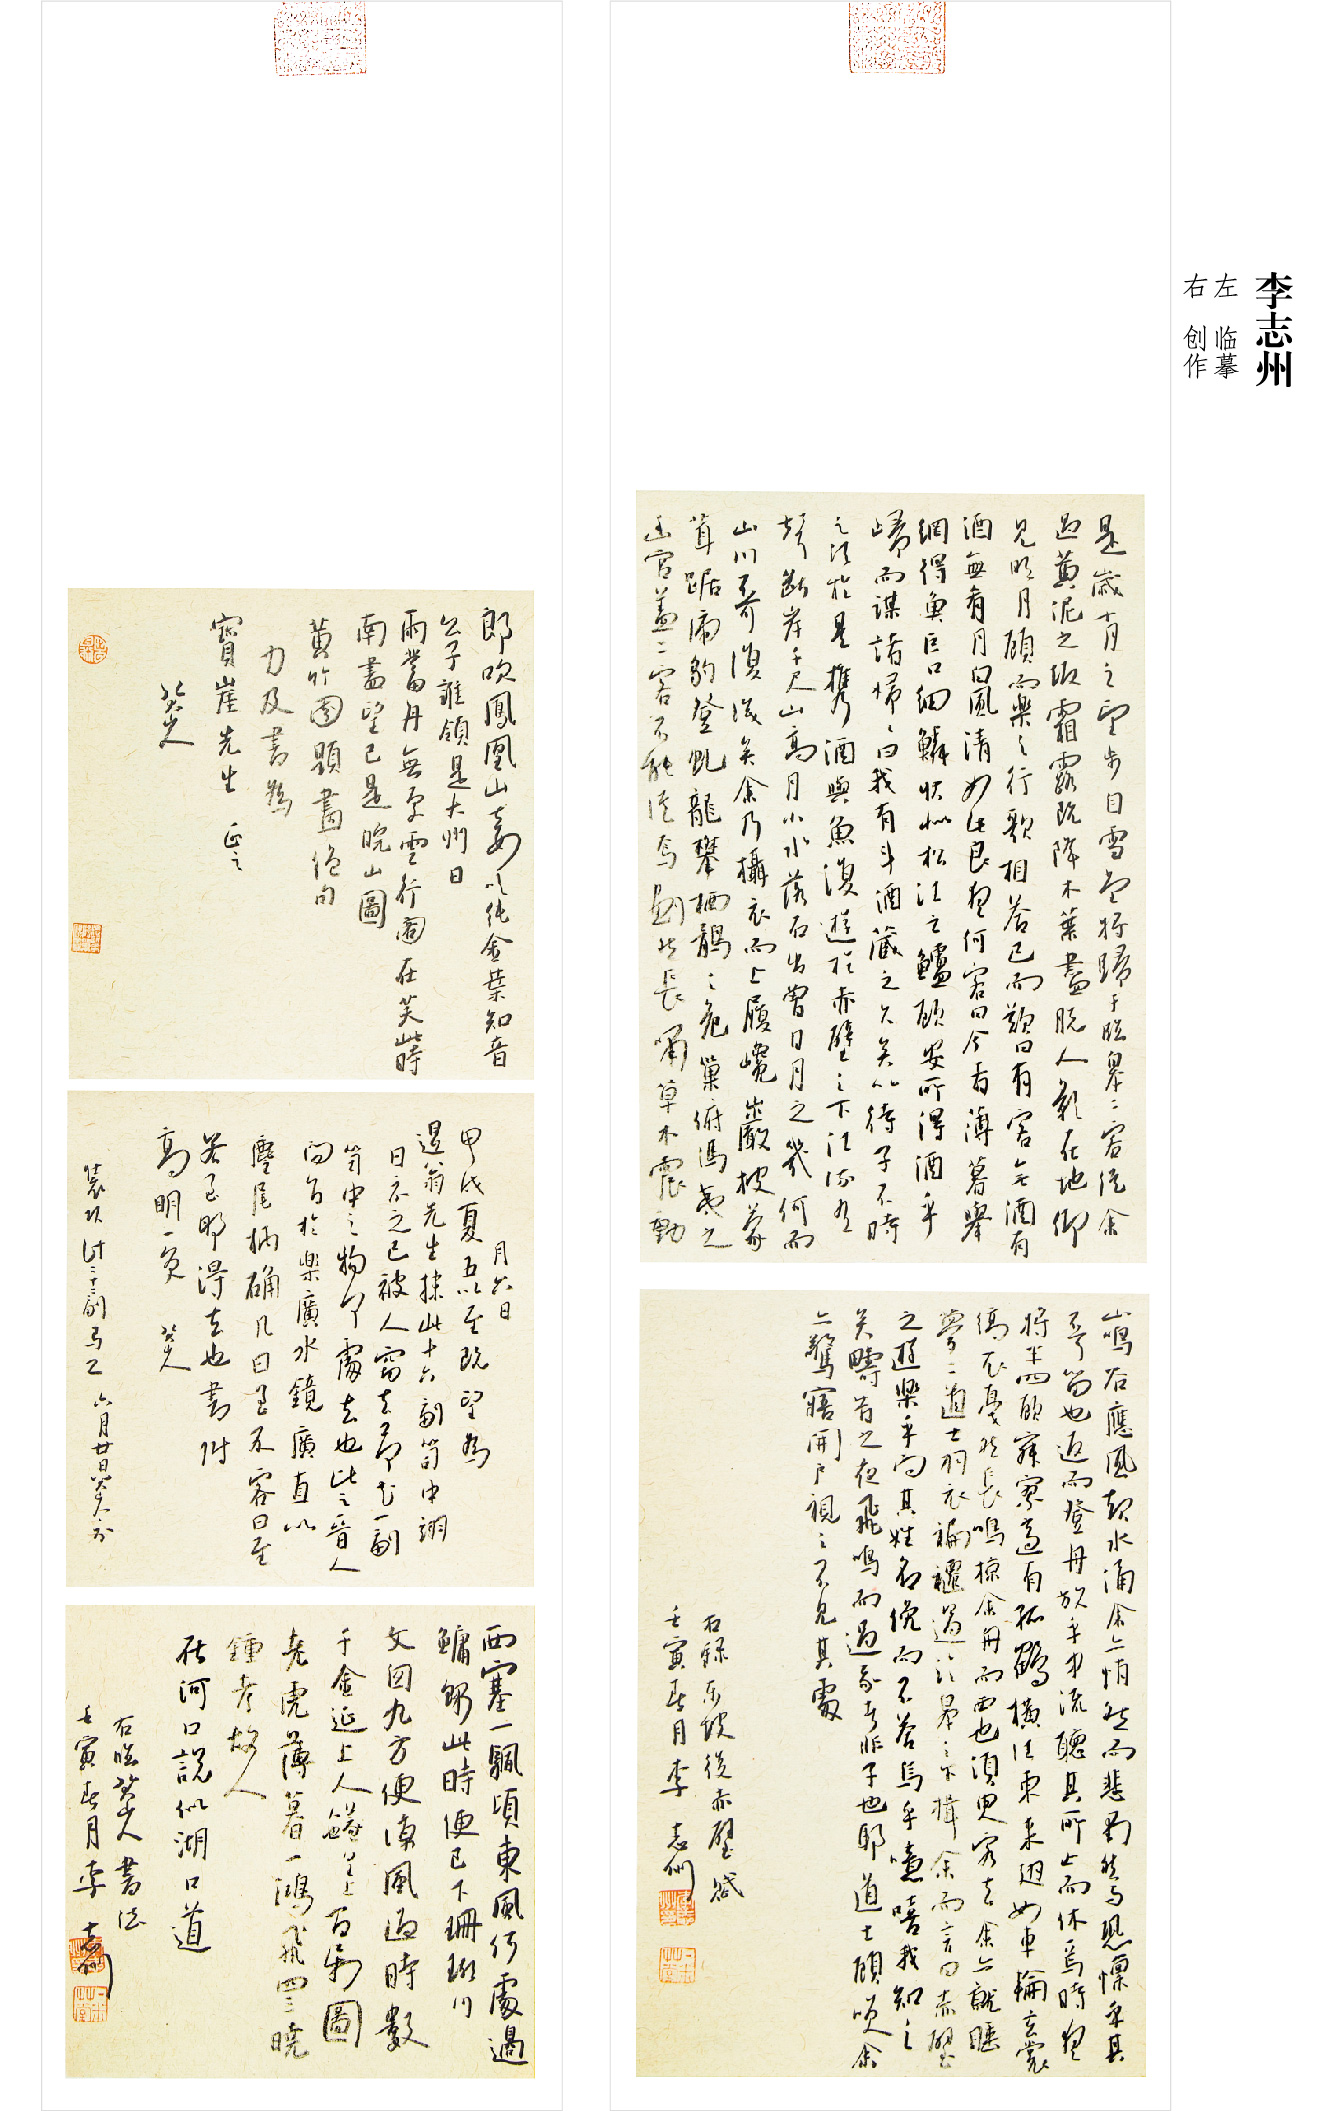 李志州
左 临摹
右 创作
是歲十月之望步自雪堂將歸于臨皋二客從余
過黃泥之坂霜露既降木葉盡脫人影在地仰
見明月顧而樂之行歌相答已而歎曰有客無酒有
酒無肴月白風清如此良夜何客曰今者薄暮舉
網得魚巨口細鱗狀似松江之鱸顧安所得酒乎
歸而謀諸婦婦曰我有斗酒藏之久矣以待子不時
之須於是攜酒與魚復遊於赤壁之下江流有
聲斷岸千尺山高月小水落石出曾日月之幾何而
山川不可復識矣余乃攝衣而上履巉巖披蒙
茸踞虎豹登虬龍攀栖鶻之危巢俯馮夷之
幽宮蓋二客不能從焉劃然長嘯草木震動
山鳴谷應風起水涌余亦悄然而悲肅然而恐懍乎其
不可留也返而登舟放乎中流聽其所止而休焉時夜
將半四顧寂寥適有孤鶴橫江東來翅如車輪玄裳
縞衣戛然長鳴掠余舟而西也須臾客去余亦就睡
夢二道士羽衣蹁躚過臨皋之下揖余而言曰赤壁
之遊樂乎問其姓名俛而不答烏乎噫嘻我知之
矣疇昔之夜飛鳴而過我者非子也耶道士顧笑余
亦驚寤開戶視之不見其處
右錄東坡後赤壁賦
壬寅春月李志州
郎吹鳳凰山妻以純金葉知音
公子雖領是大州日
雨當丹無厚雲行圖在笑此時
南畫望已是晚山圖
黃竹園題畫絕句
力及書為
寶崖先生 正之
八大山人
月六日
甲戌夏五以至既望為
退翁先生抹此十六副笥中翊
日示之已被人竊去節去一副
笥中之物何處去也此之晉人
問旨於樂廣水鏡廣直以
麈尾柄确几曰至不客曰至
若至那得去也書附
高明一笑 八大山人
西塞一颿頃東風何處過
鱅魵此時便已下珊瑚川
文因九方便湊風過時數
千金延上人
堯虎薄暮一鴻飛四三曉
鍾老故人
在河口說似湖口道
右臨八大山人書法
壬寅春月李志州